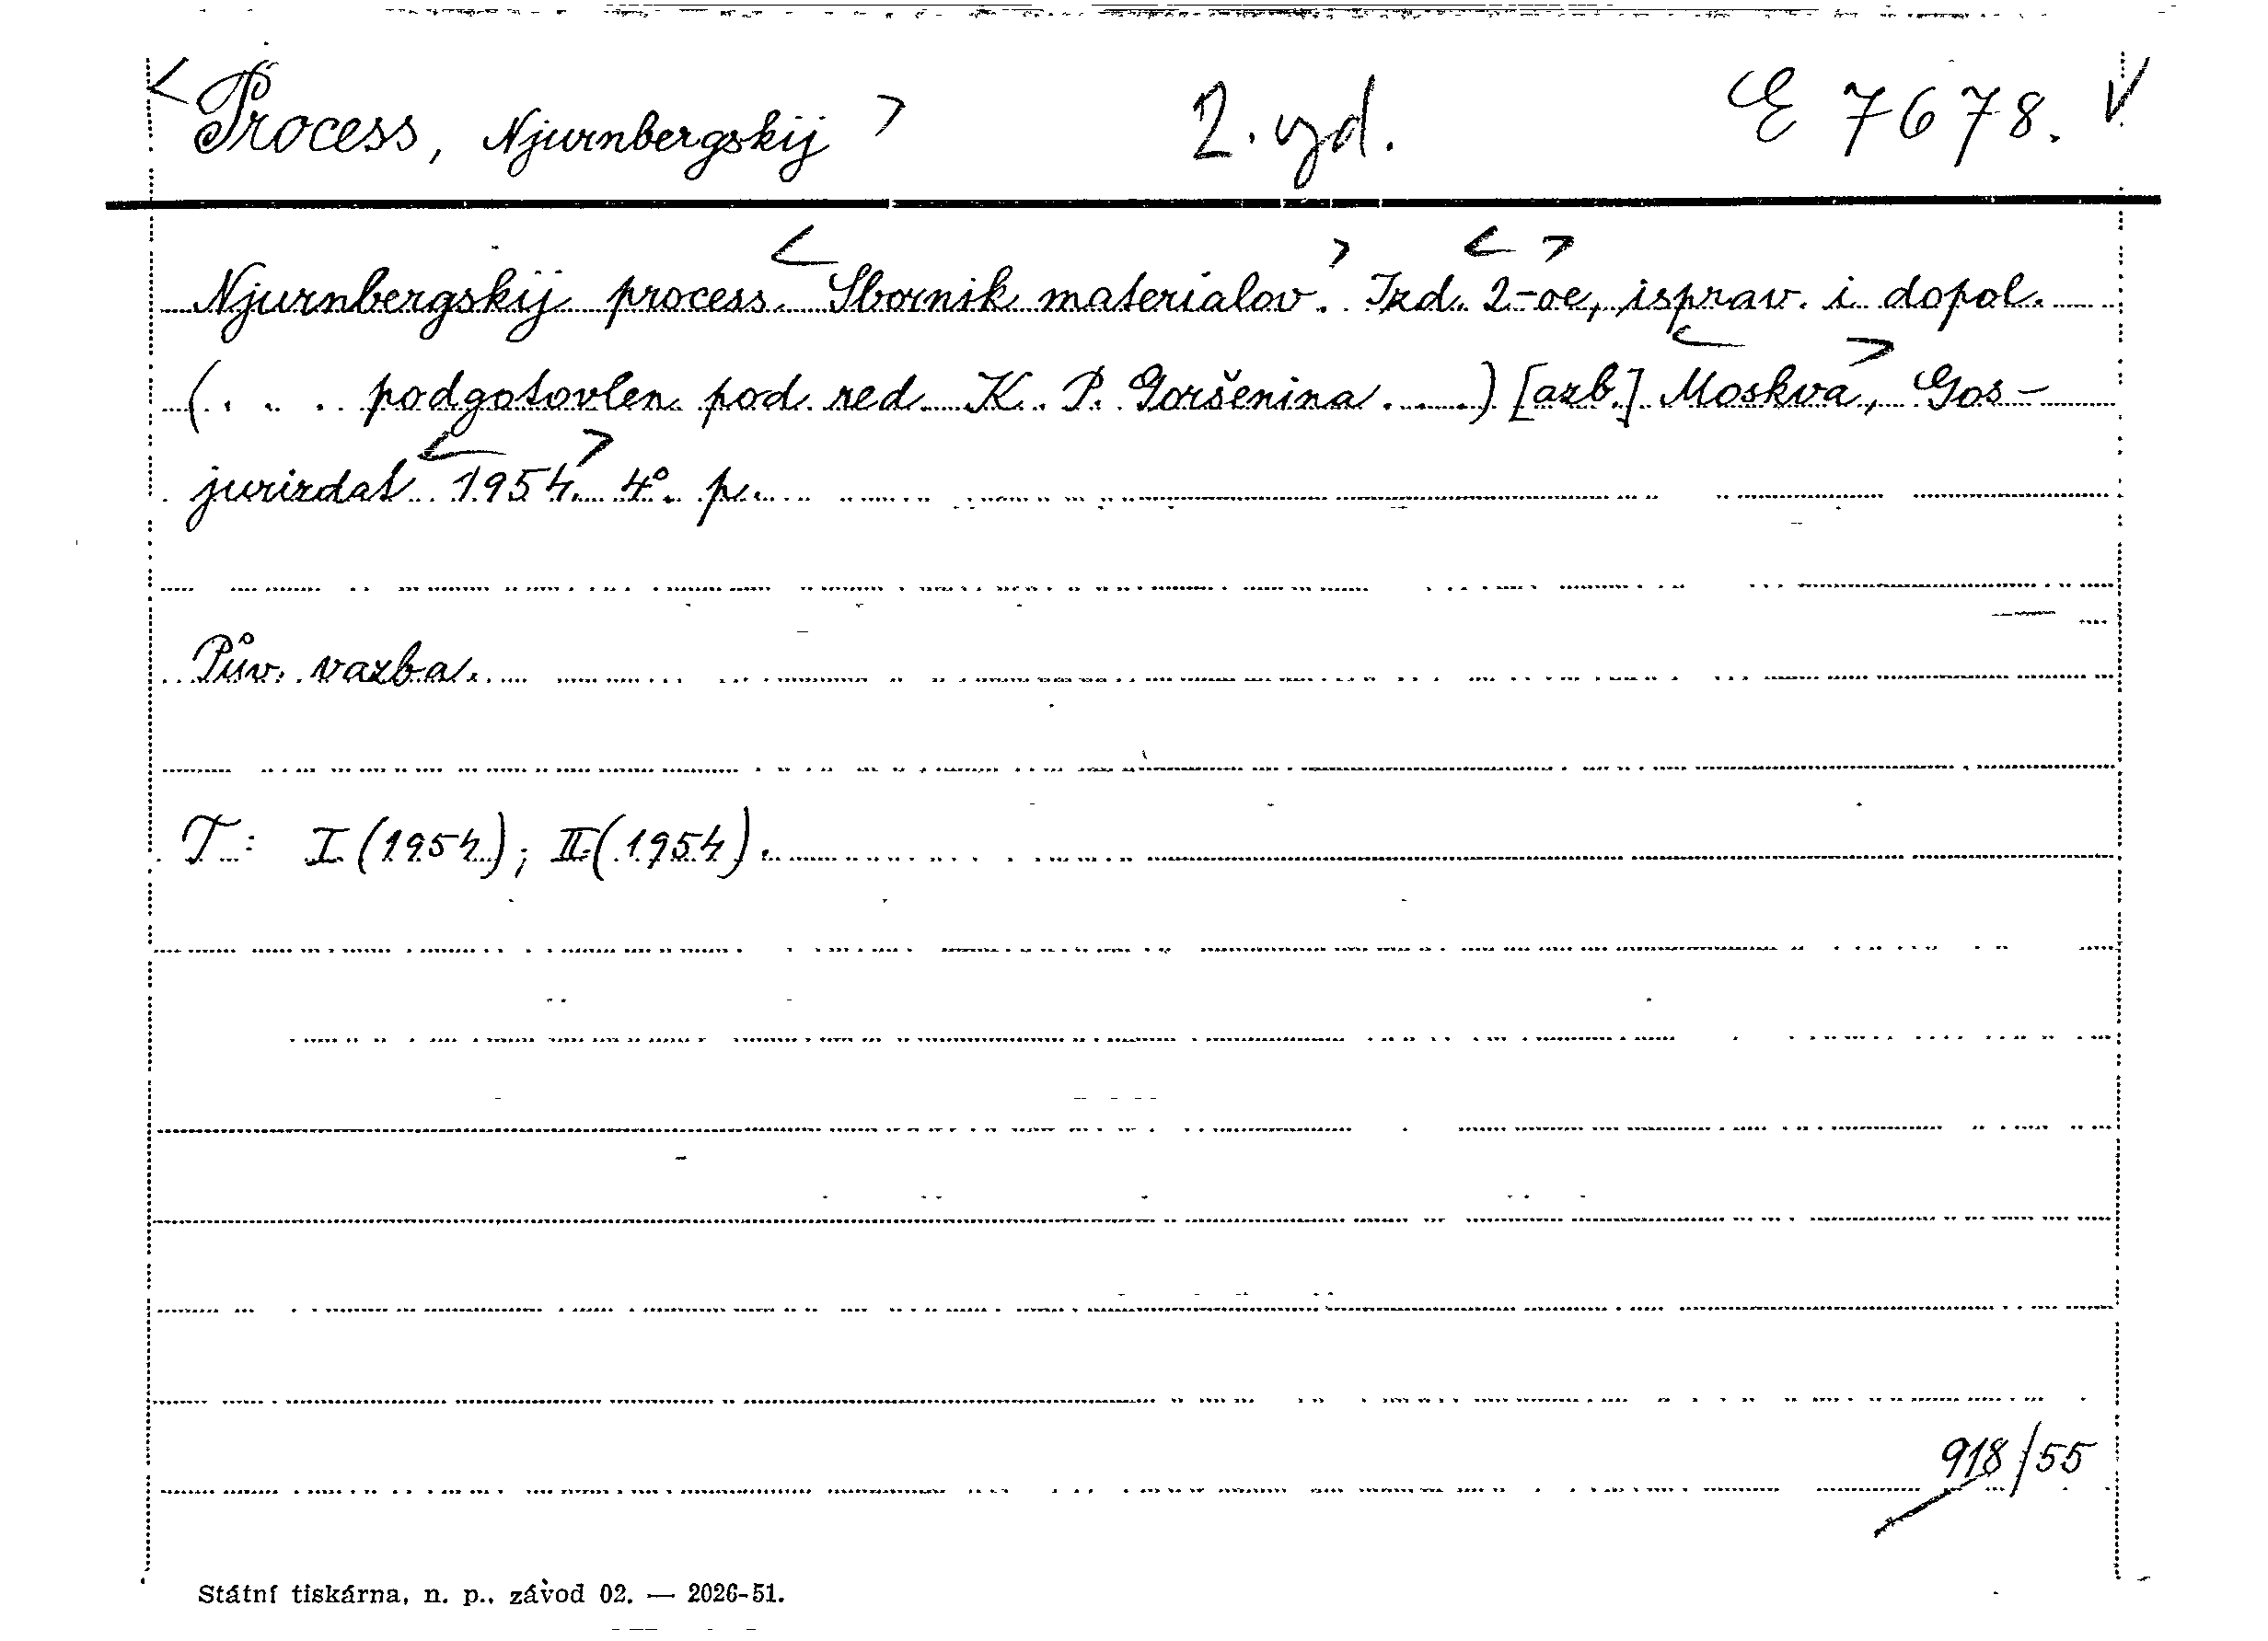 <Process, Njurnbergskij> 2. vyd. E 7678. V
Njurnbergskij process. <Sbornik materialov.> Izd. <2-oe>, isprav. i dopol.
(. . . podgotovlen pod red. K. P. Goršenina . . .) [azb.] <Moskva>, Gos-
jurizdat <1954.> 4°. p.
Pův. vazba.
T: I (1954); II (1954).
918/55
Státní tiskárna, n. p., závod 02. — 2026-51.